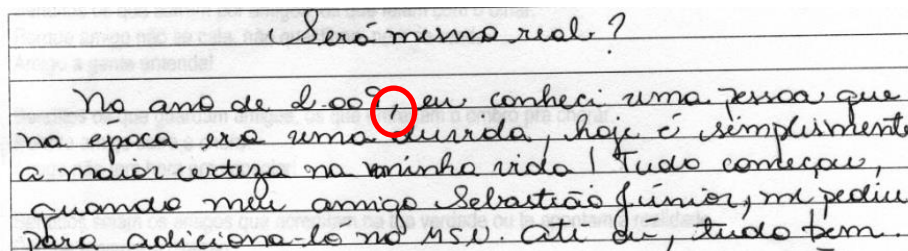 Será mesmo real?
No ano de 2.009, eu conheci uma pessoa que
na epoca era uma duvida, hoje é simplismente
a maior certeza na minha vida! Tudo começou,
quando meu amigo Sebastião Júnior, me pediu
para adiciona-lo no MSN. Até ai, tudo bem.